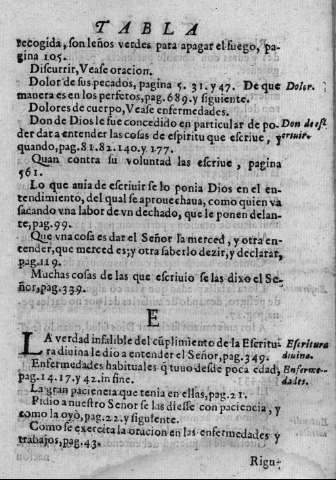 TABLA
recogida, son leños verdes para apagar el fuego, pa-
gina 105.
Discurrir, Vease oracion.
Dolor de sus pecados, pagina 5. 31. y 47. De que
Dolor.
manera es en los perfetos, pag. 689. y siguiente.
Dolores de cuerpo, Vease enfermedades.
Don de Dios le fue concedido en particular de po-
Don de esc
der dar a entender las cosas de espiritu que escriue, y
criuir.
quando, pag. 81. 82. 140. y 177.
Quan contra su voluntad las escriue, pagina
561.
Lo que auia de escriuir se lo ponia Dios en el en-
tendimiento, del qual se aprouechaua, como quien va
sacando vna labor de vn dechado, que le ponen delan-
te, pag. 99.
Que vna cosa es dar el Señor la merced, y otra en-
tender, que merced es; y otra saberlo dezir, y declarar,
pag. 119.
Muchas cosas de las que escriuio se las dixo el Se-
ñor, pag. 339.
E
LA verdad infalible del cūplimiento de la Escritu-
Escritura
ra diuina le dio a entender el Señor, pag. 349.
diuina.
Enfermedades habituales q̃ tuuo desde poca edad,
Enferme-
pag. 14. 17. y 42. in fine.
dades.
La gran paciencia que tenia en ellas, pag. 21.
Pidio a nuestro Señor se las diesse con paciencia, y
como la oyò, pag. 22. y siguiente.
Como se exercita la oracion en las enfermedades y
trabajos, pag. 43.
Rigu-